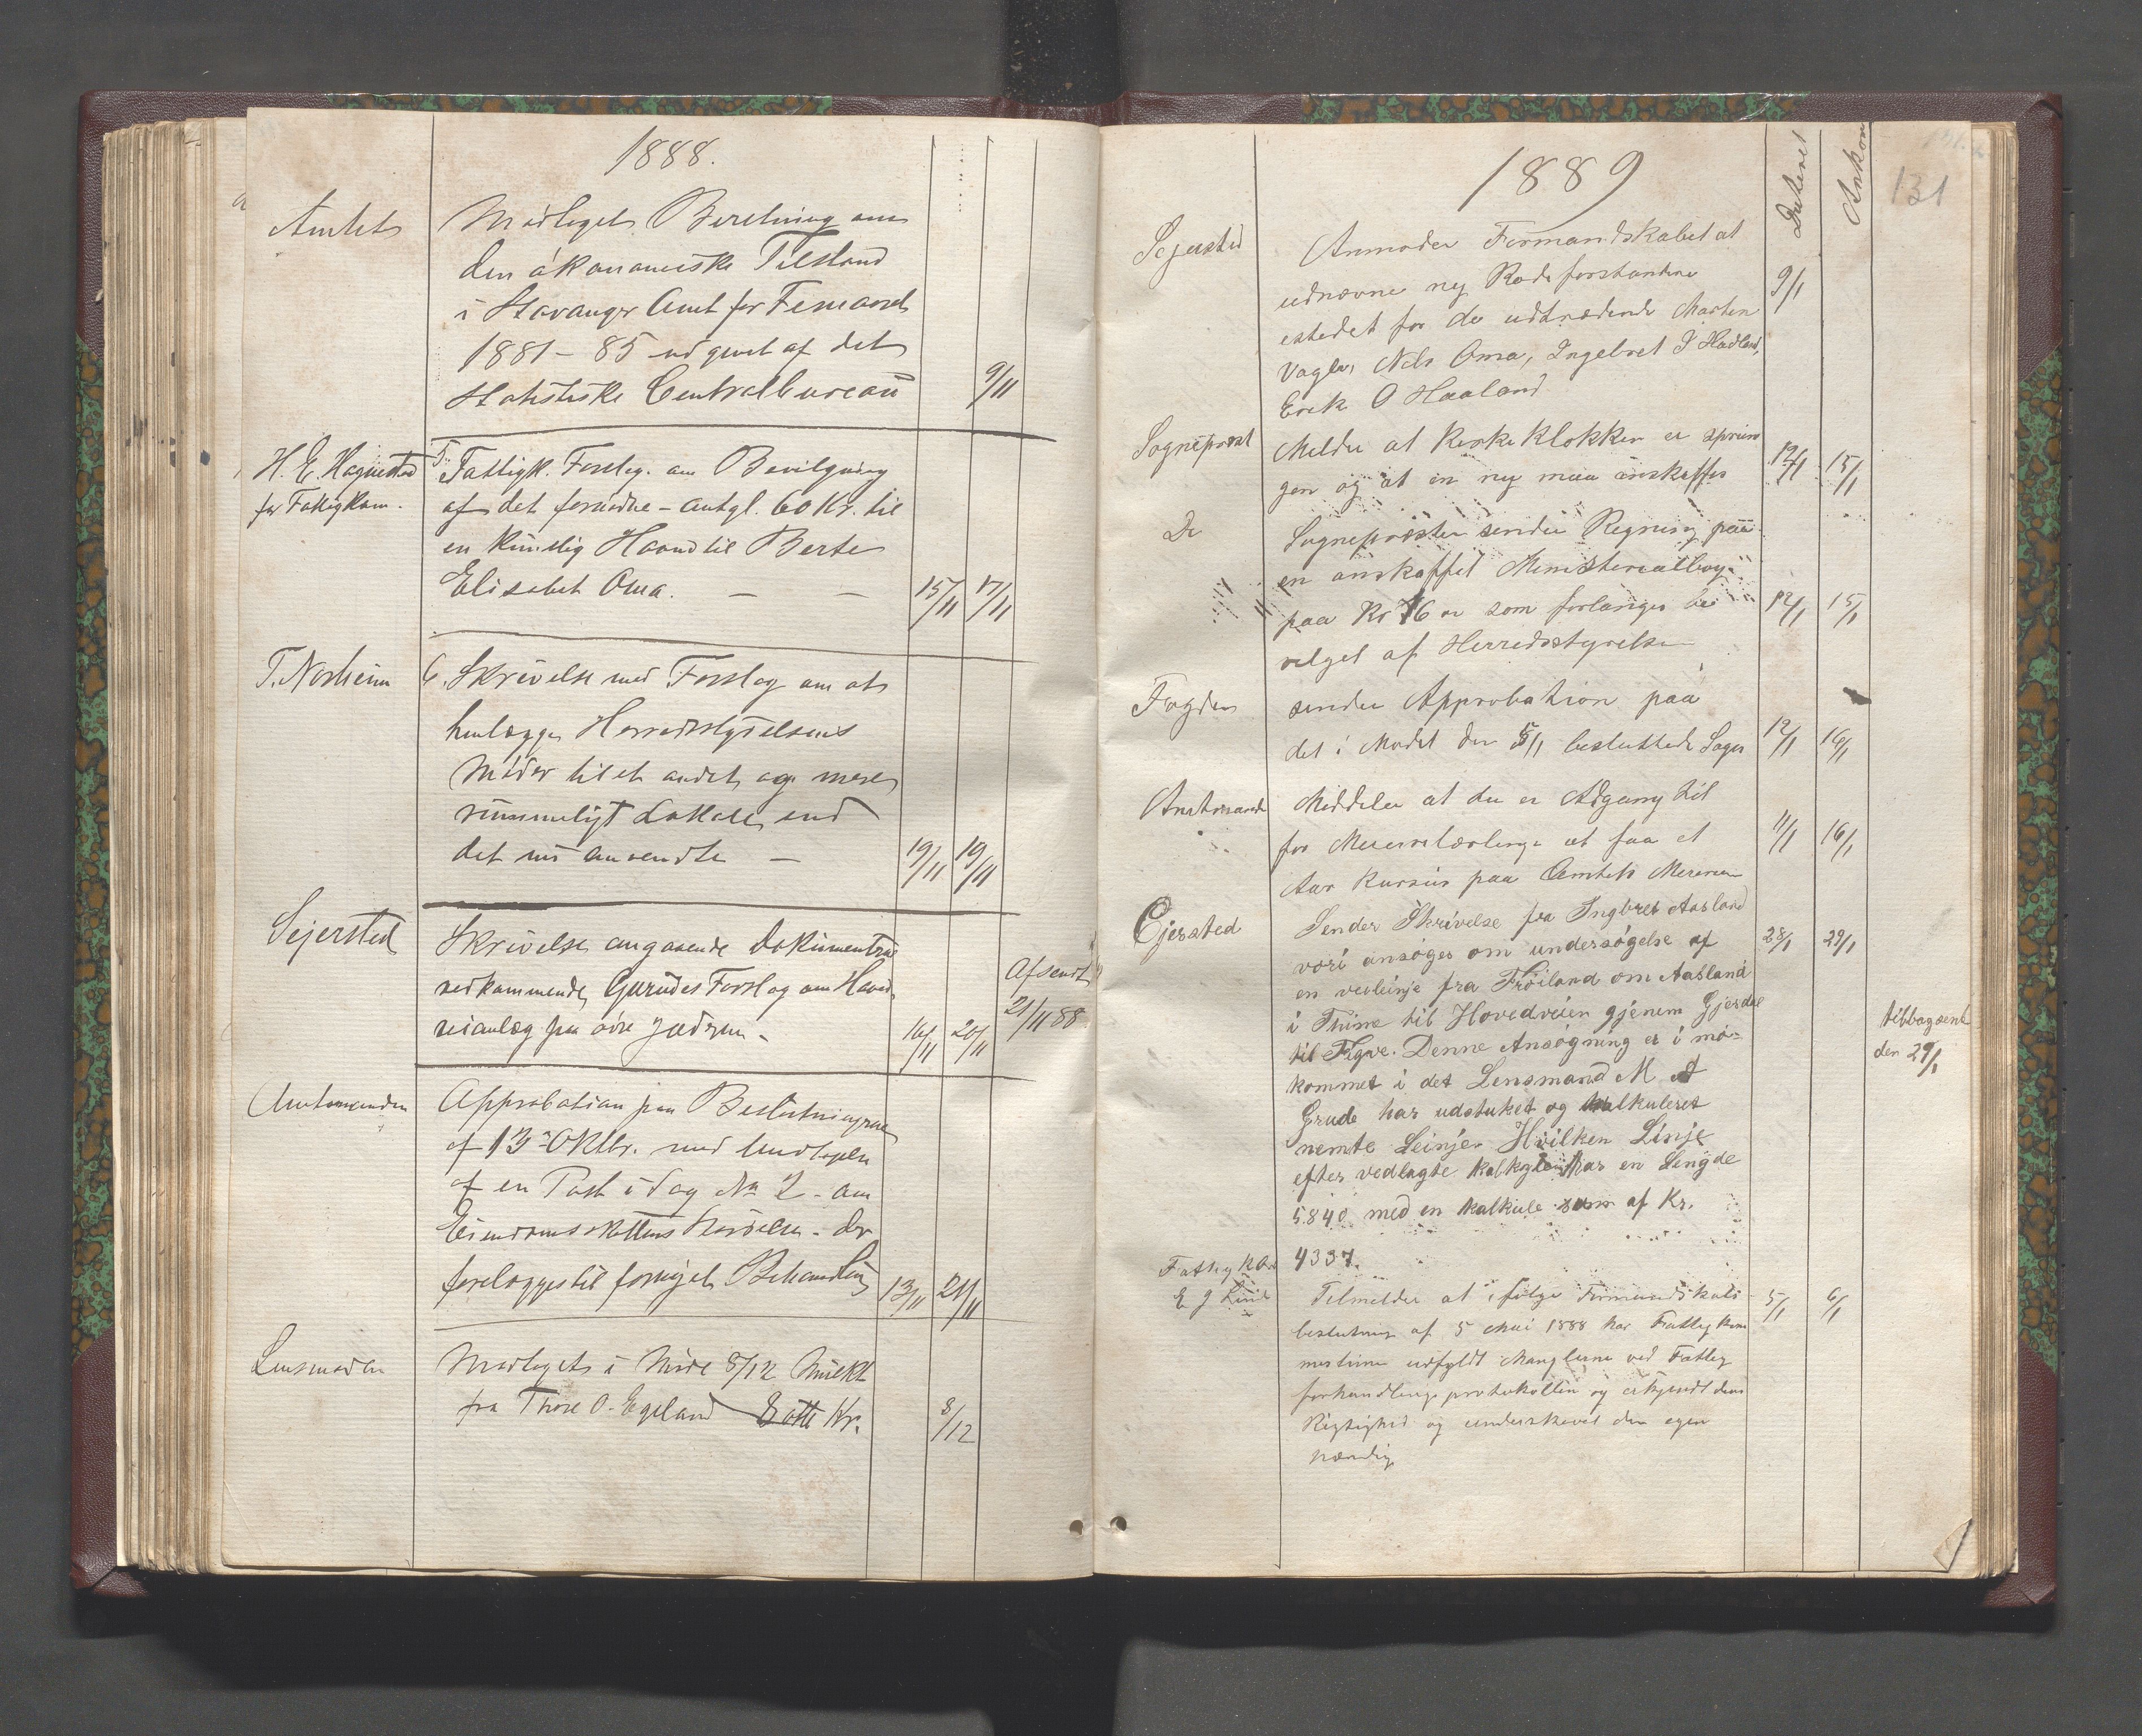 1888.
Amtet
Modtaget Beretning om
den økonomiske Tilstand
i Stavanger Amt for Femaaret
1881-85 udgivet af det
statistiske Centralbureau
9/11
H. E. Hagnestad
for Fattigkom.
5. Fattigk. Forslag om Bevilgning
af det fornødne - antgl. 60 Kr. til
en kunstig Haand til Berte
Elisabet Oma. — —
15/11 17/11
T. Norheim
6. Skrivelse med Forslag om at
henlægge Herredsstyrelsens
Møder til et andet og mere
rummeligt Lokale, end
det nu anvendte —
19/11 19/11
Sejersted
Skrivelse angaaende Dokumenterne
vedkommende Grudes Forslag om Hoved-
veianlæg paa øvre Jædren.
16/11 20/11
Afsendt
21/11 88
Amtmanden
Approbation paa Beslutningerne
af 13de Oktbr. med Undtagelse
af en Post i Sag No 2 - om
Eiendomsskattens Størrelse - der
forelægges til fornyet Behandling
13/11 21/11
Lensmanden
Modtaget i Møde 8/12 Mulkt
fra Thore O. Egeland 8 otte Kr.
8/12
1889
Dateret
Ankom
131
Sejersted
Anmoder Formandskabet at
udnævne ny Rodeforstandere
istedet for de udtrædende Marten
Vagle, Nels Oma, Ingebret P Hadland,
Erik O Haaland
9/1
Sogneprest
Melder at Kirkeklokken er sprun
gen og at en ny maa anskaffes
12/1 15/1
Do
Sognepresten sender Regning paa
en anskaffet Ministerialbog
paa Kr 76 er som forlanges be
vilget af Herredsstyrelsen
12/1 15/1
Fogden
sender Approbation paa
det i Mødet den 5/1 besluttede Sager
12/1 16/1
Amtmanden
Middeler at der er Adgang til
for Meierielærlinge at faa et
Aar Kursus paa Amtets Meierium
11/1 16/1
Ejersted
Sender Skrivelse fra Ingbret Aasland
vori ansøges om undersøgelse af
en veileinje fra Frøiland om Aasland
i Thime til Hovedveien gjenem Gjesdal
til Figve. Denne Ansøgning er i mø-
kommet i det Lensmand M A
Grude har udstuket og kalkuleret
nemte Leinje. Hvilken Linje
efter vedlagte kalkyle har en Lengde
5840 med en kalkule sum af Kr.
4337.
28/1 29/1
tilbagsent
den 29/1
Fattigkom
E J Lima
Tilmelder at ifølge Formandskabs
beslutning af 5 Mai 1888 har Fattigkom
misionen udfyldt Manglerne ved Fattig
forhandlings protokollen og erkjendt dens
Rigtighed og underskrevet den egen
hændig
5/1 6/1